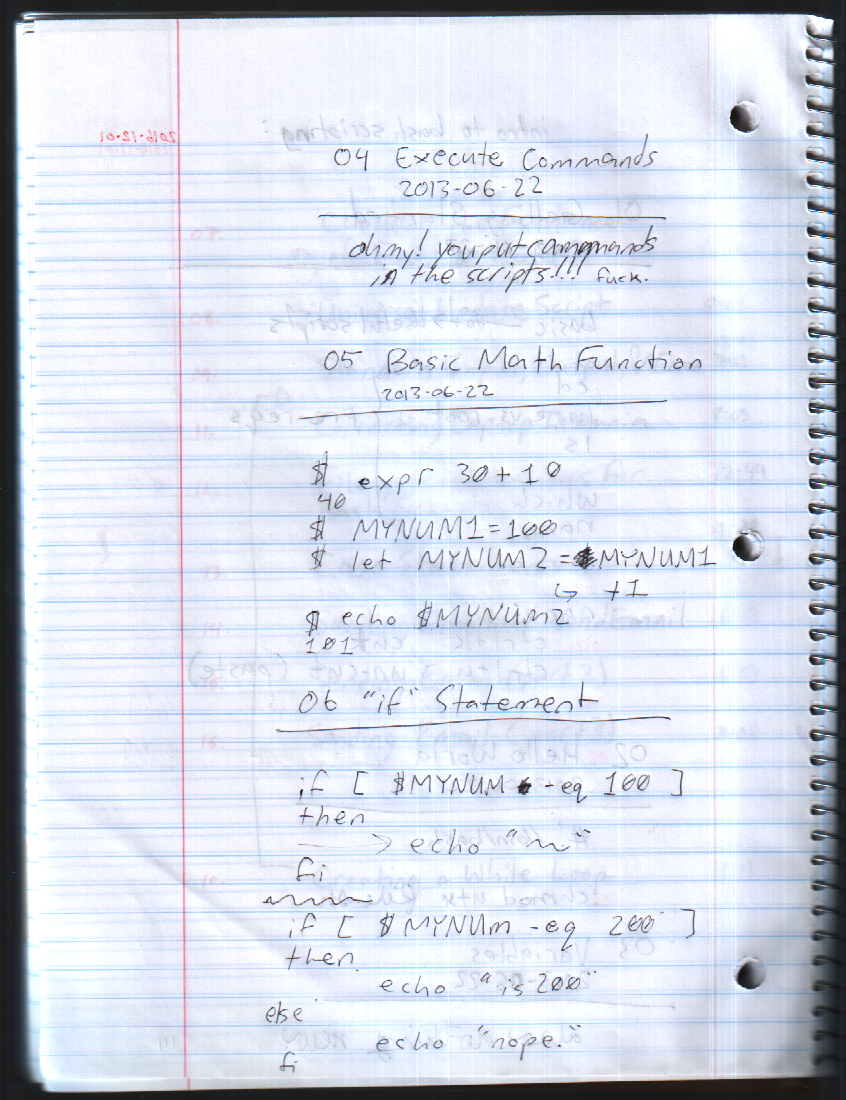 04 Execute Commands
2013-06-22
oh my! you put commands
in the scripts!!! fuck.
05 Basic Math Function
2013-06-22
$ expr 30 + 10
40
$ MYNUM1=100
$ let MYNUM2 = $MYNUM1
↳ +1
$ echo $MYNUM2
101
06 "if" Statement
if [ $MYNUM -eq 100 ]
then
→ echo "~"
fi
if [ $MYNUM -eq 200 ]
then
echo "is 200"
else
echo "nope."
fi